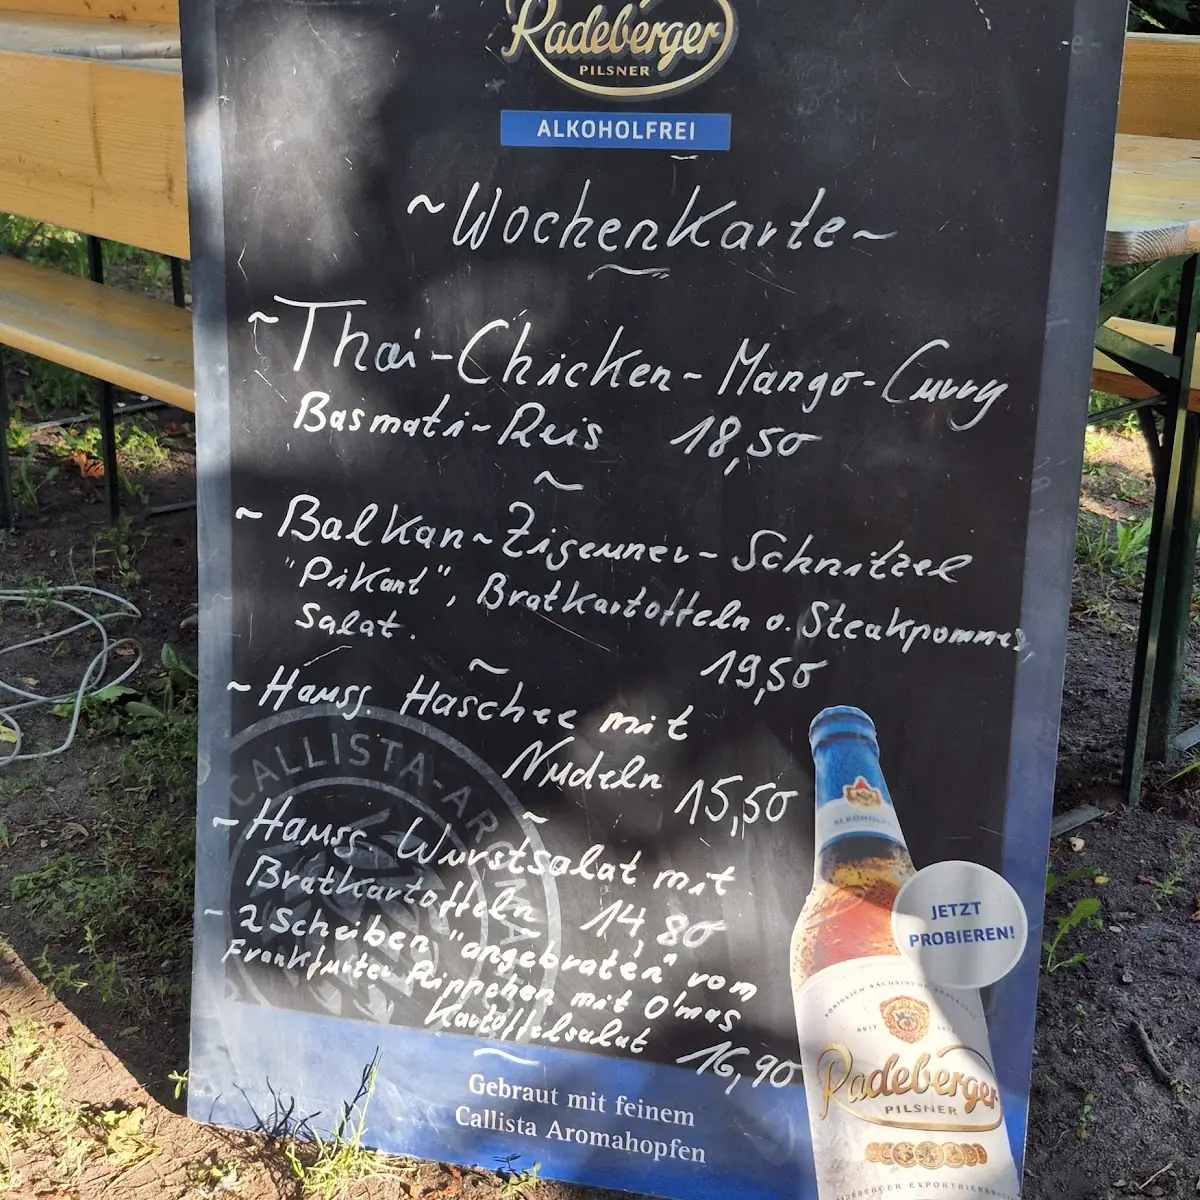 Radeberger
PILSNER
ALKOHOLFREI
~Wochenkarte~
~Thai-Chicken-Mango-Curry
Basmati-Reis 18,50
~
~Balkan-Zigeuner-Schnitzel
"Pikant", Bratkartoffeln o. Steakpommes,
Salat.
19,50
~
~Hausg. Haschee mit
Nudeln 15,50
~
~Hausg. Wurstsalat mit
Bratkartoffeln 14,80
~2 Scheiben "angebraten" vom
Frankfurter Rippchen mit O'mas
Kartoffelsalat
16,90
CALLISTA-AROMA
ALKOHOLFREI
JETZT
PROBIEREN!
Radeberger
PILSNER
RADEBERGER EXPORTBIERBRAUEREI
Gebraut mit feinem
Callista Aromahopfen